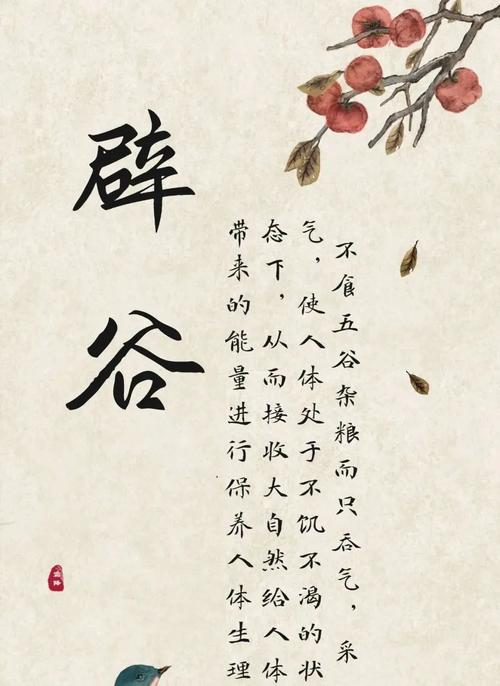 辟谷
不食五谷杂粮而只吞气，采
气，使人体处于不饥不渴的状
态下，从而接收大自然给人体
带来的能量进行保养人体生理